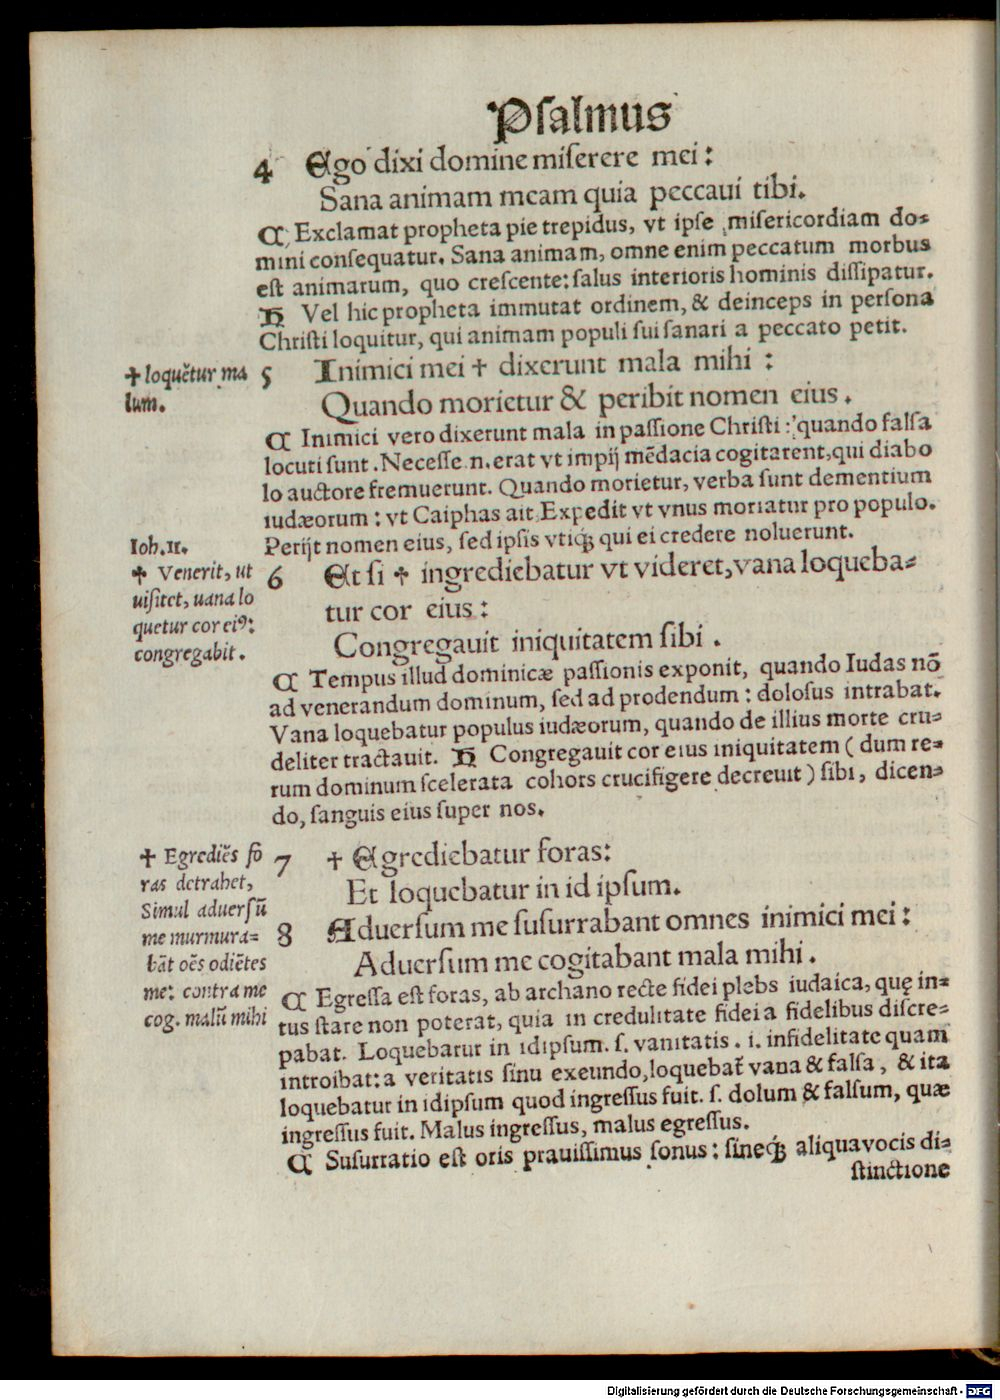 Psalmus
4 Ego dixi domine miserere mei:
Sana animam meam quia peccaui tibi.
¶ Exclamat propheta pie trepidus, vt ipse misericordiam do=
mini consequatur. Sana animam, omne enim peccatum morbus
est animarum, quo crescente: salus interioris hominis dissipatur.
Vel hic propheta immutat ordinem, & deinceps in persona
Christi loquitur, qui animam populi sui sanari a peccato petit.
✝ loquẽtur ma
lum.
5 Inimici mei ✝ dixerunt mala mihi :
Quando morietur & peribit nomen eius.
¶ Inimici vero dixerunt mala in passione Christi : quando falsa
locuti sunt. Necesse .n. erat vt impij mẽdacia cogitarent, qui diabo
lo auctore fremuerunt. Quando morietur, verba sunt dementium
iudæorum : vt Caiphas ait Expedit vt vnus moriatur pro populo.
Perijt nomen eius, sed ipsis vtiqꝫ qui ei credere noluerunt.
Ioh.11.
✝ Venerit, ut
uisitet, uana lo
quetur cor eiꝰ:
congregabit.
6 Et si ✝ ingrediebatur vt videret, vana loqueba=
tur cor eius :
Congregauit iniquitatem sibi .
¶ Tempus illud dominicæ passionis exponit, quando Iudas nō
ad venerandum dominum, sed ad prodendum : dolosus intrabat.
Vana loquebatur populus iudæorum, quando de illius morte cru=
deliter tractauit. Congregauit cor eius iniquitatem ( dum re=
rum dominum scelerata cohors crucifigere decreuit ) sibi, dicen=
do, sanguis eius super nos.
✝ Egrediẽs fo
ras detrahet,
Simul aduersũ
me murmura=
bãt oẽs odiẽtes
me: contra me
cog. malũ mihi
7 ✝ Egrediebatur foras:
Et loquebatur in id ipsum.
8 Aduersum me susurrabant omnes inimici mei :
Aduersum me cogitabant mala mihi .
¶ Egressa est foras, ab archano recte fidei plebs iudaica, quę in=
tus stare non poterat, quia in credulitate fidei a fidelibus discre=
pabat. Loquebatur in idipsum. s. vanitatis. i. infidelitate quam
introibat: a veritatis sinu exeundo, loquebat̃ vana & falsa, & ita
loquebatur in idipsum quod ingressus fuit. s. dolum & falsum, quæ
ingressus fuit. Malus ingressus, malus egressus.
¶ Susurratio est oris prauissimus sonus : sineqꝫ aliqua vocis di=
stinctione
Digitalisierung gefördert durch die Deutsche Forschungsgemeinschaft - DFG